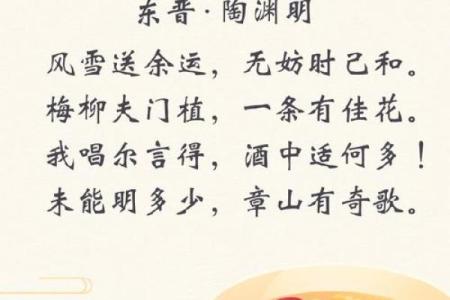 东晋·陶渊明
风雪送余运，无妨时已和。
梅柳夫门植，一条有佳花。
我唱尔言得，酒中适何多！
未能明多少，章山有奇歌。